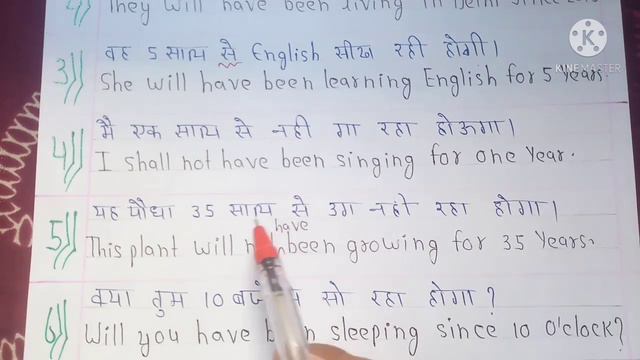 They will have been living in Delhi since
3) वह 5 साल से English सीख रही होगी।
She will have been learning English for 5 Years.
4) मै एक साल से नही गा रहा होऊगा।
I shall not have been singing for one Year.
यह पौधा 35 साल से उग नहीं रहा होगा।
have
5) This plant will been growing for 35 Years.
क्या तुम 10 सो रहा होगा ?
6) Will you have sleeping since 10 o'clock?
K
KINEMASTER